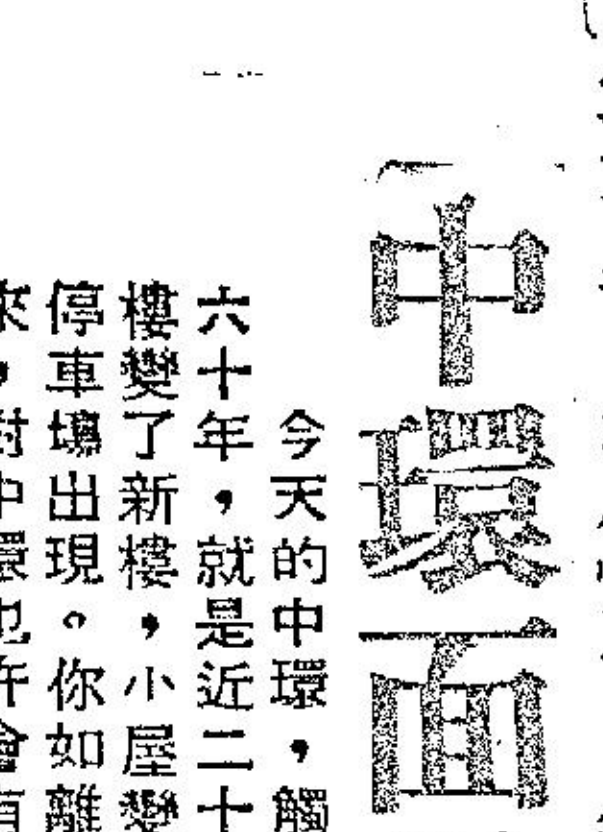 中環面
今天的中環，觸
六十年，就是近二十
樓變了新樓，小屋變
停車場出現。你如離
來，對中環也許會有